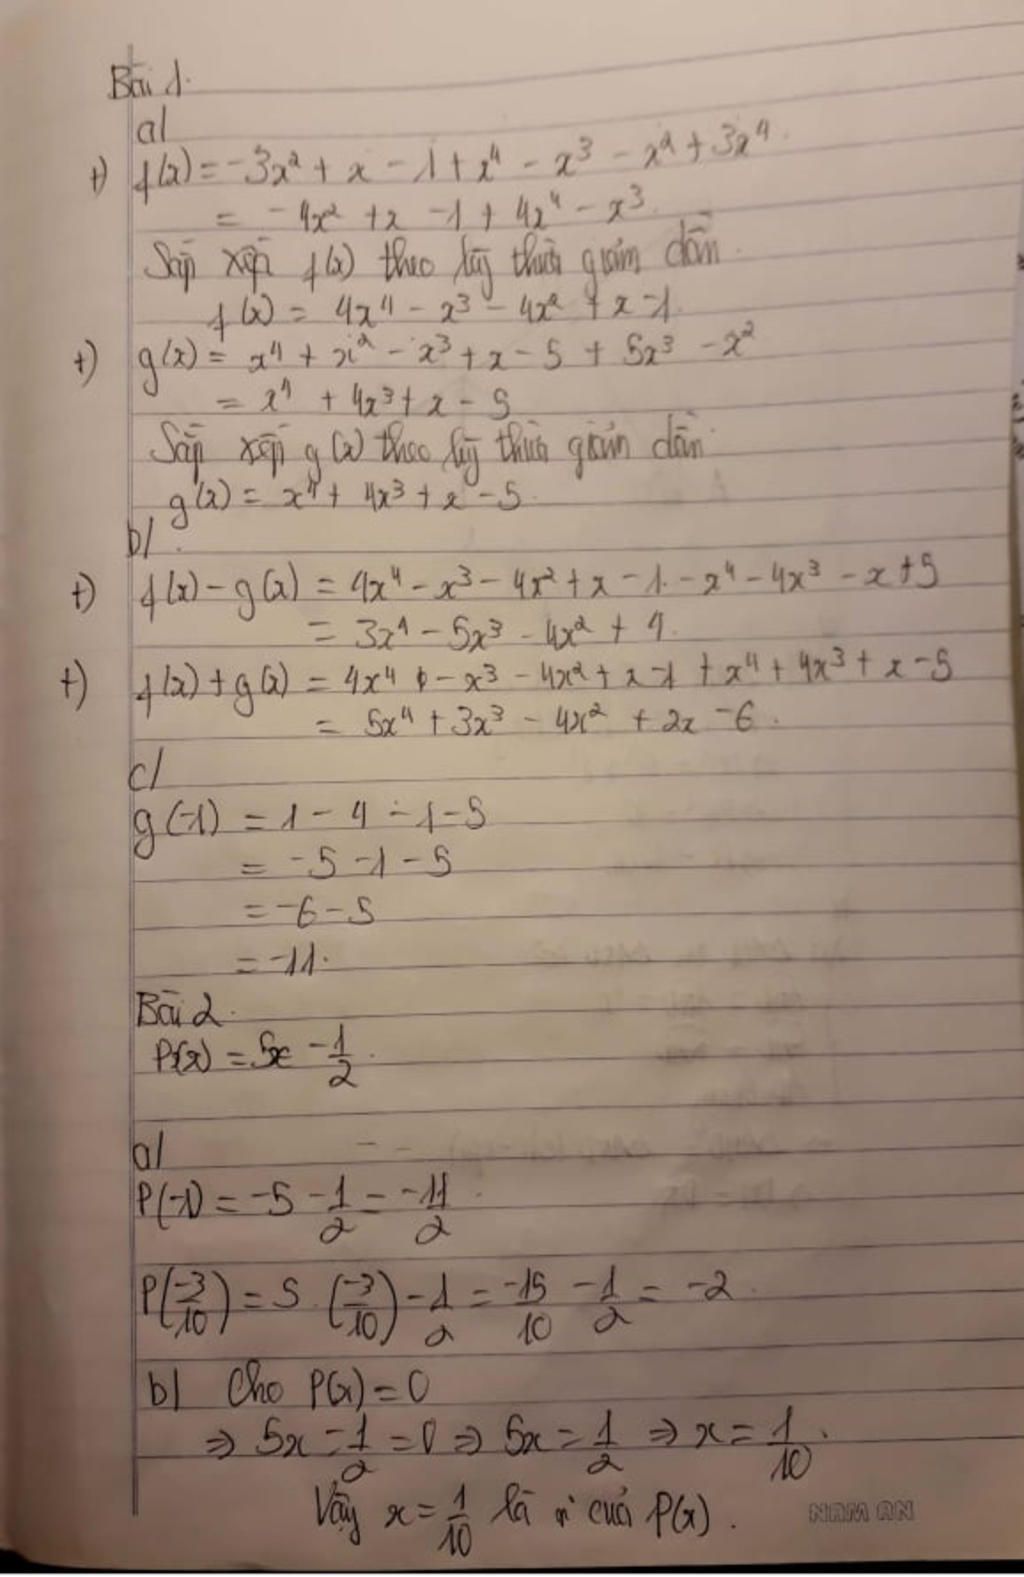 Bài 1.
a/
+) f(x) = -3x² + x - 1 + x⁴ - x³ - x² + 3x⁴.
= -4x² + x - 1 + 4x⁴ - x³.
Sắp xếp f(x) theo lũy thừa giảm dần.
f(x) = 4x⁴ - x³ - 4x² + x - 1.
+) g(x) = x⁴ + x² - x³ + x - 5 + 5x³ - x²
= x⁴ + 4x³ + x - 5
Sắp xếp g(x) theo lũy thừa giảm dần.
g(x) = x⁴ + 4x³ + x - 5.
b/.
+) f(x) - g(x) = 4x⁴ - x³ - 4x² + x - 1 - x⁴ - 4x³ - x + 5
= 3x⁴ - 5x³ - 4x² + 4.
+) f(x) + g(x) = 4x⁴ - x³ - 4x² + x - 1 + x⁴ + 4x³ + x - 5
= 5x⁴ + 3x³ - 4x² + 2x - 6.
c/
g(-1) = 1 - 4 - 1 - 5
= -5 - 1 - 5
= -6 - 5
= -11.
Bài 2.
P(x) = 5x - 1/2.
a/
P(-1) = -5 - 1/2 = -11/2.
P(-3/10) = 5 . (-3/10) - 1/2 = -15/10 - 1/2 = -2.
b/ Cho P(x) = 0
⇒ 5x - 1/2 = 0 ⇒ 5x = 1/2 ⇒ x = 1/10.
Vậy x = 1/10 là n° của P(x).
NAM AN